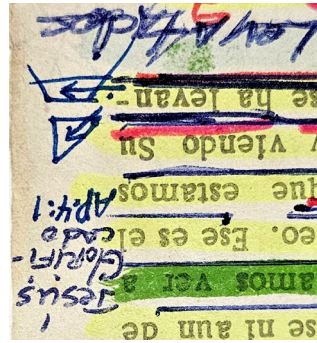 se ni aun de
amos ver a
eo. Ese es el
que estamos
y viendo Su
se ha levan-
Jesús
Glorifi-
cado
AP.4:1